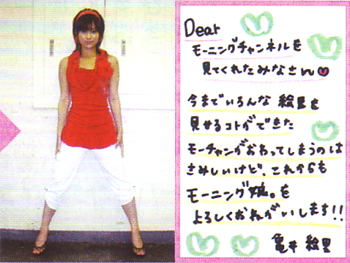 Dear
モーニングチャンネルを
見てくれたみなさん♥
今までいろんな 絵里を
見せるコトができた
モーチャンがおわってしまうのは
さみしいけど、これからも
モーニング娘。を
よろしくおねがいします!!
亀井 絵里